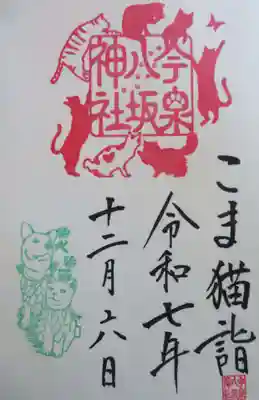 今泉
八坂
神社
こま猫詣
令和七年
十二月六日